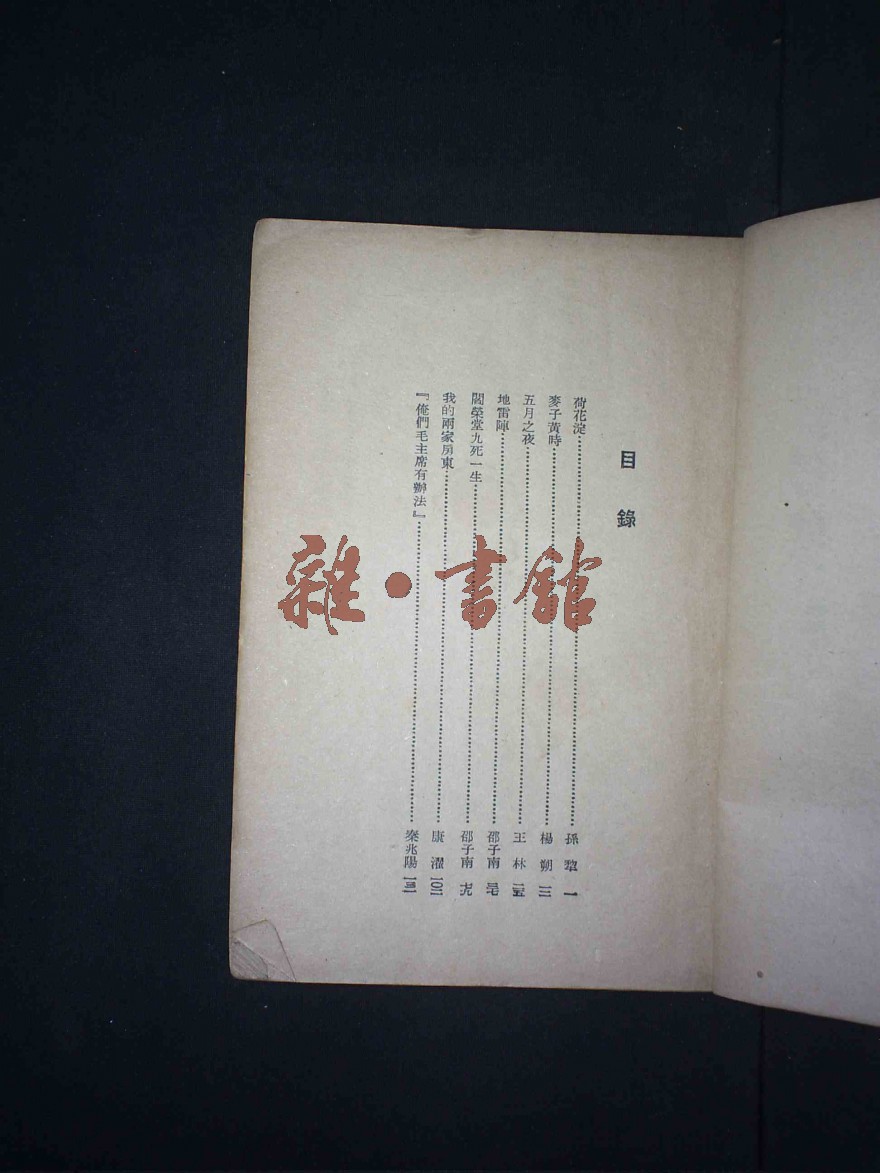 目錄
荷花淀……孫犂 一
麥子黃時……楊朔 一三
五月之夜……王林 二五
地雷陣……邵子南 三七
閻榮堂九死一生……邵子南
我的兩家房東……康濯 一〇一
『俺們毛主席有辦法』……秦兆陽
雜·書館